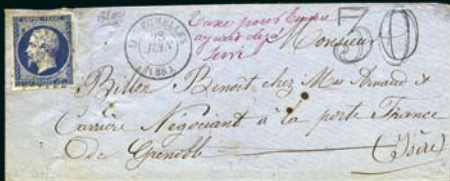 EMPIRE FRANC.
15
JUIN
Taxe pour Timbre
ayant déjà
servi
30
Monsieur
Billon Benoit chez Mrs Arnaud &
Carrière Négociant à la porte France
de Grenoble (Isère)